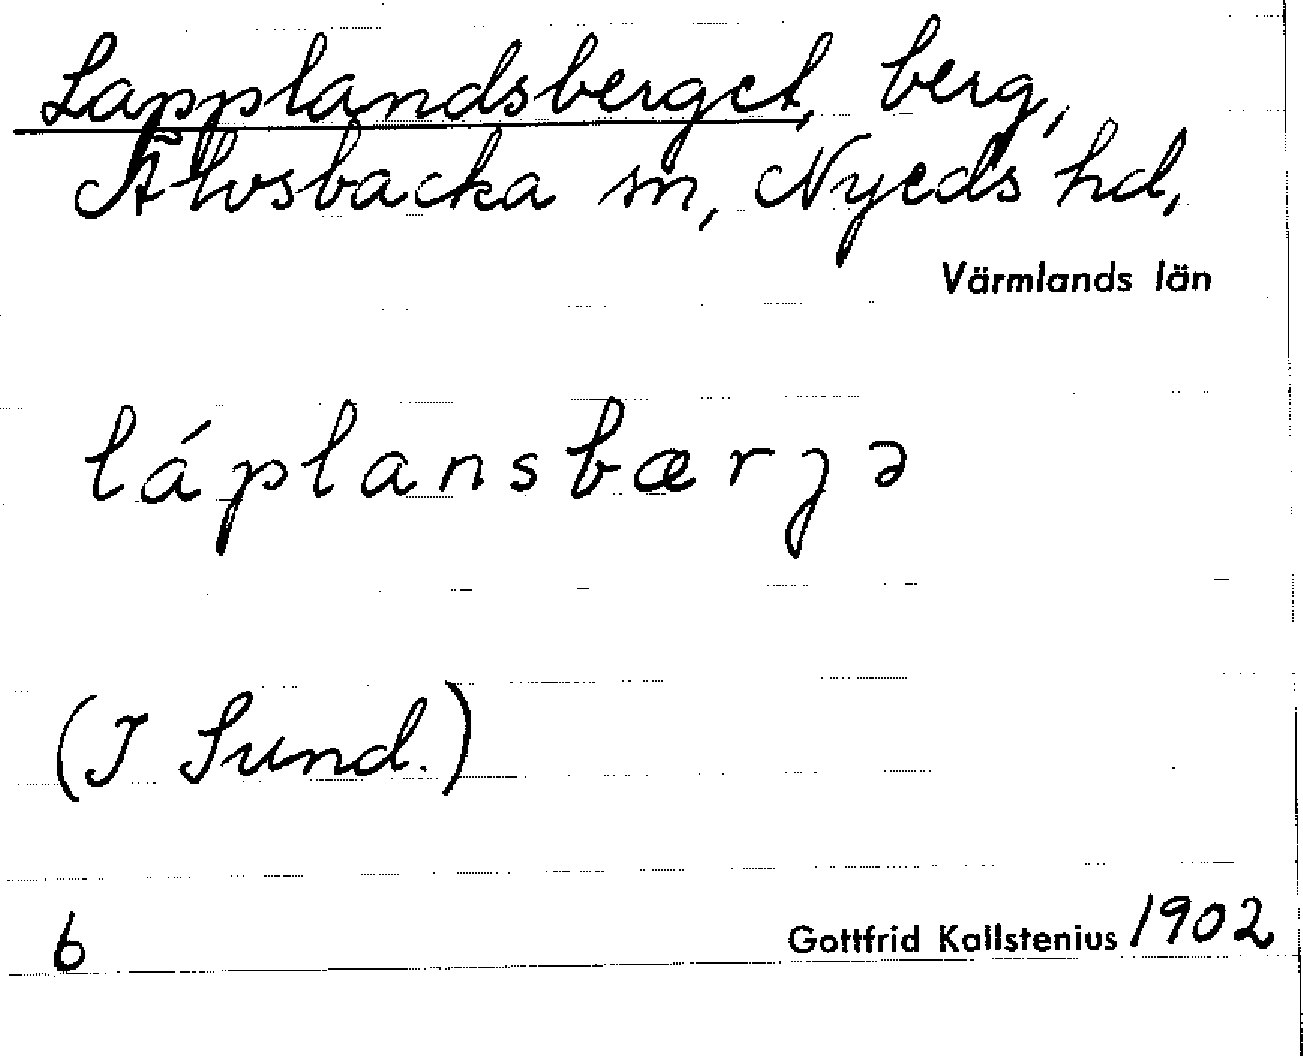 Lapplandsberget, berg,
Älvsbacka sn, Nyeds hd,
Värmlands län
láplansbærȷə
(I Sund.)
6
Gottfrid Kallstenius 1902